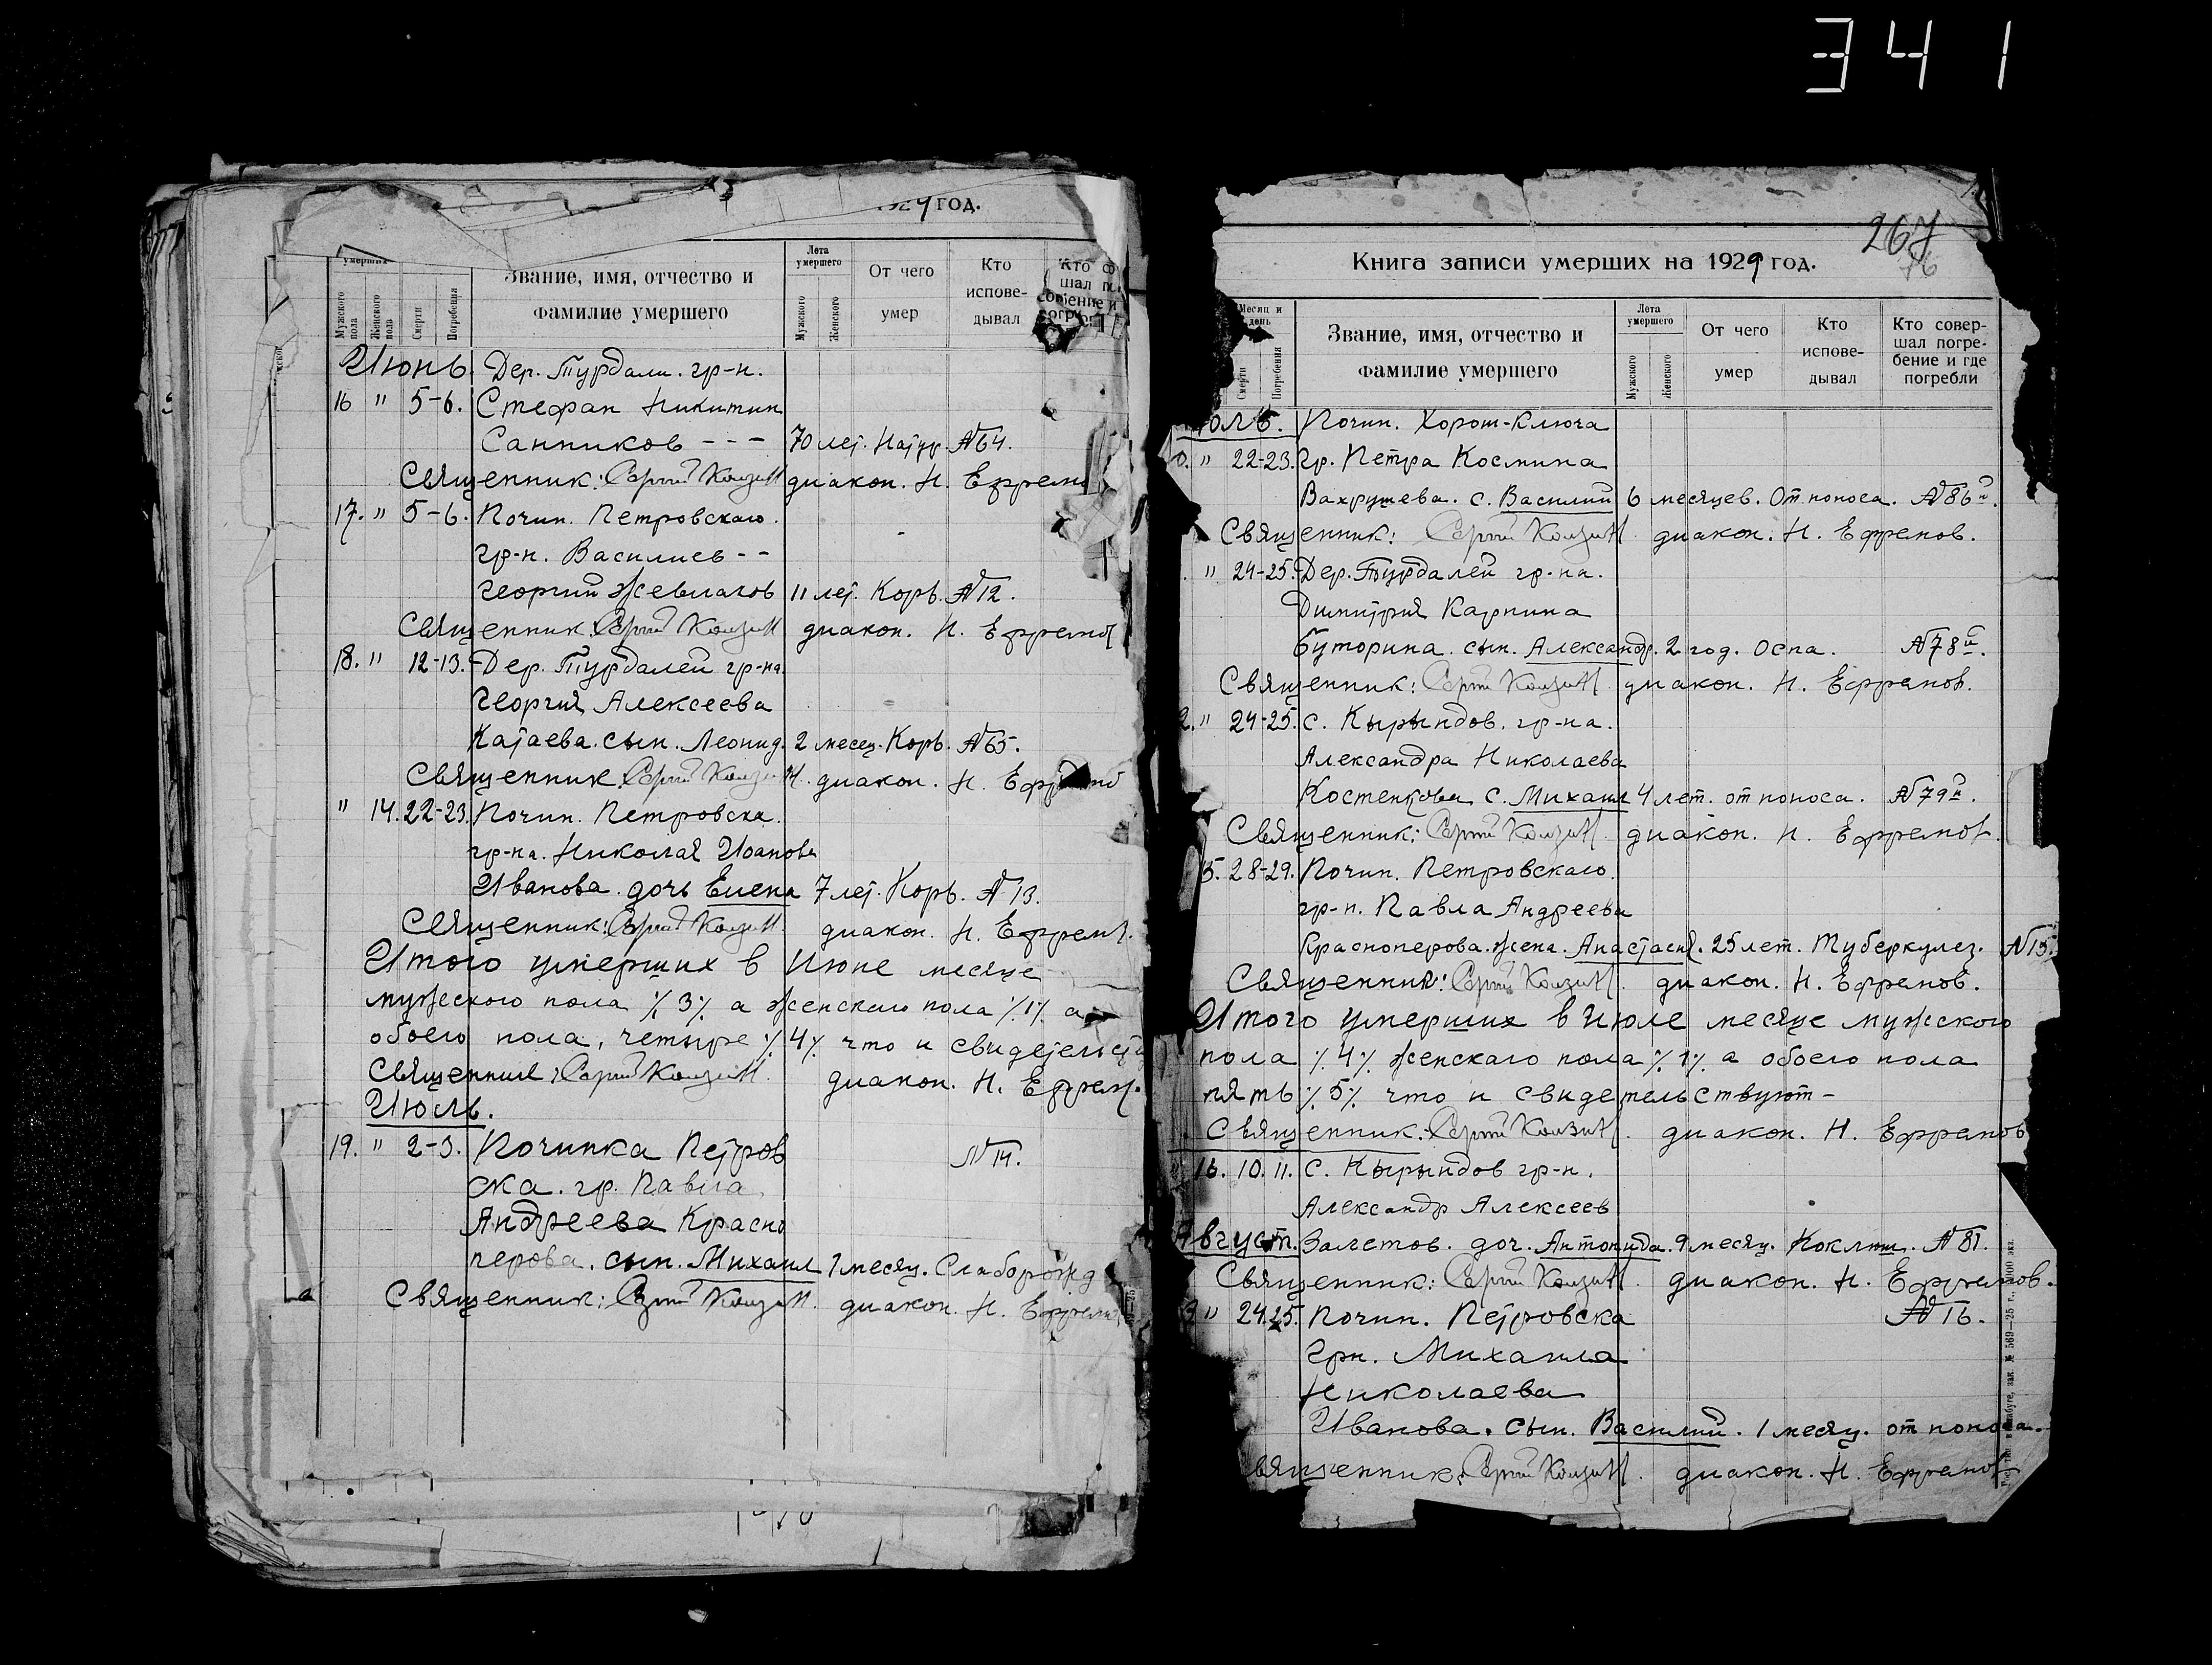 341
1929 год.
умерших
Мужского пола
Женского пола
Смерти
Погребения
Звание, имя, отчество и
фамилие умершего
Лета умершего
Мужского
Женского
От чего
умер
Кто
испове-
дывал
Июнь. Дер. Турдали. гр-н.
16 " 5-6. Стефан Никитин
Санников - - - 70 лет. Натур. №64.
Священник: Сергий диакон. Н. Ефремов
17. " 5-6. Почин. Петровскаго.
гр-н. Василиев - -
Георгий Жевлаков 11 лет. Корь. №12.
Священник: Сергий диакон. Н. Ефремов
18. " 12-13. Дер. Турдалей гр-на.
Георгия Алексеева
Катаева. сын. Леонид. 2 месец. Корь. №65.
Священник. Сергий диакон. Н.
" 14. 22-23. Почин. Петровска.
гр-на. Николая Иванова
Иванова. дочь Елена 7 лет. Корь. №13.
Священник: Сергий диакон. Н. Ефремов.
Итого умерших в Июне месяце
мужеского пола ٪ 3 ٪ а женскаго пола ٪ 1 ٪ а
обоего пола, четыре ٪ 4 ٪ что и свидетельст
Священник: Сергий диакон. Н. Ефремов.
Июль.
19. " 2-3. Починка Петров №14.
ска. гр. Павла
Андреева Красно
перова. сын. Михаил 1 месяц. Слаборожд
Священник: Сергий диакон. Н. Ефремов
267
76
Книга записи умерших на 1929 год.
Месяц и день
Смерти
Погребения
Звание, имя, отчество и
фамилие умершего
Лета умершего
Мужского
Женского
От чего
умер
Кто
испове-
дывал
Кто совер-
шал погре-
бение и где
погребли
юль. Почин. Хорош-Ключа
0. " 22-23. гр. Петра Космина
Вахрушева. с. Василий 6 месяцев. От поноса. №86й.
Священник: Сергий диакон. Н. Ефремов.
" 24-25. Дер. Турдалей гр-на.
Димитрия Карпина
Буторина. сын. Александр. 2 год. Оспа. №78й.
Священник: Сергий диакон. Н. Ефремов.
2. " 24-25. с. Кырындов. гр-на.
Александра Николаева
Костенкова с. Михаил 4 лет. от поноса. №79й.
Священник: Сергий диакон. Н. Ефремов.
15. 28-29. Почин. Петровскаго.
гр-н. Павла Андреева
Красноперова. жена. Анастасия. 25 лет. Туберкулез. №15.
Священник: Сергий диакон. Н. Ефремов.
Итого умерших в Июле месяце мужского
пола ٪ 4 ٪ женскаго пола ٪ 1 ٪ а обоего пола
пять ٪ 5 ٪ что и свидетельствуют -
Священник: Сергий диакон. Н. Ефремов
16. 10. 11. с. Кырындов гр-н.
Александр Алексеев
Август. Залетов. доч. Антонида. 9 месяц. Коклюш. №81.
Священник: Сергий диакон. Н. Ефремов.
" 24.25. Почин. Петровска №16.
грн. Михаила
Николаева
Иванова. сын. Василий. 1 месяц. от поноса.
вященник: Сергий диакон. Н. Ефремов
зак. № 569—25 г.,